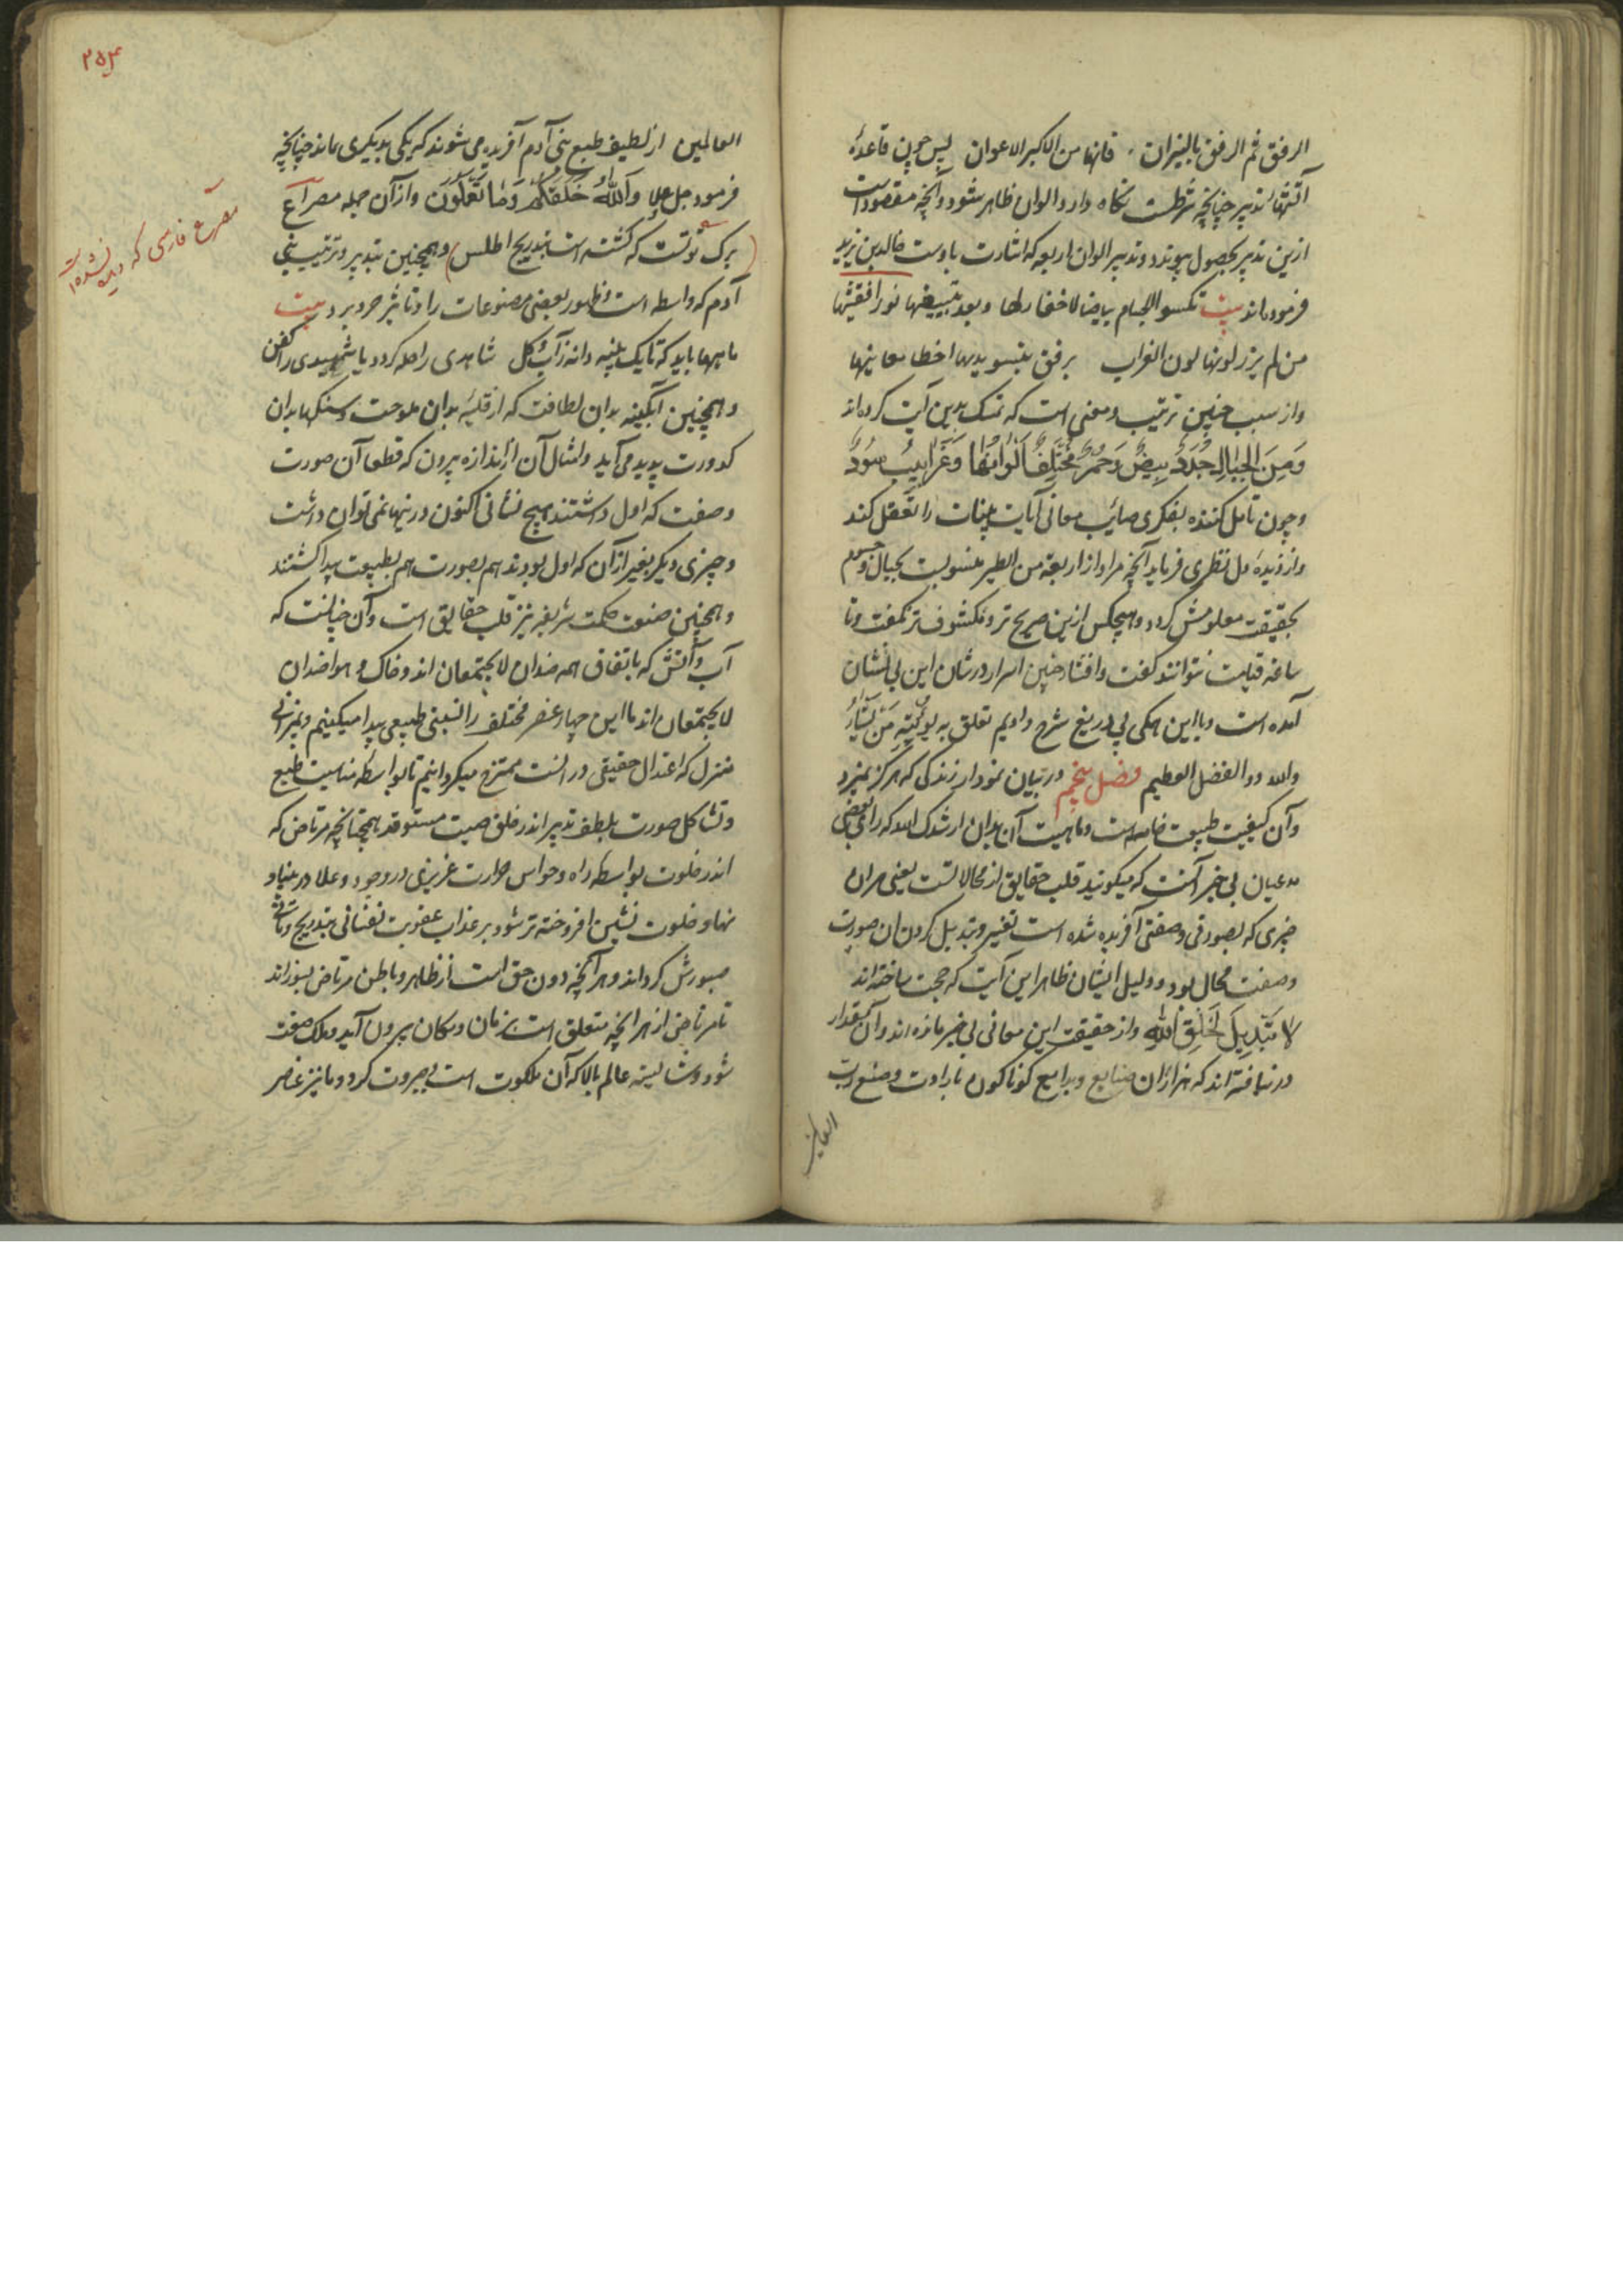 الرفق ثم الرفق بالنیران فانها من الاکبر الاعوان پس چون قاعدهٔ
آتشهاء تدبیر چنانچه شرطست نکاه دارد الوان ظاهر شود و آنچه مقصود است
ازین تدبیر بحصول پیوندد و تدبیر الوان اربعه که اشارت باوست خالد بن یزید
فرموده‌اند بیت تکسو الاجسام بیاضا لا خفار لها و بعد تبییضها نورا
من لم یزر لونها لون الغراب برفق بتسویدیها اخطا معانیها
و از سبب چنین ترتیب و معنی است که تمسک بدین آیت کرده‌اند
وَمِنَ الجِبٰالِ جُدَدٌ بِیضٌ وَحُمرٌ مُختَلِفٌ اَلوانُهٰا وَغَرابیبُ سُودٌ
و چون تامل کننده بفکری صائب معانی آیات بینات را تعقل کند
و از دیدهٔ دل نظری فرماید آنچه مراد از اربعة من الطیر منسوبست بجبال و جسوم
بحقیقت معلومش کردد و هیچکس ازین صریح تر و مکشوف تر نکفت و تا
ساعة قیامت نتوانند کفت و افشاء چنین اسرار در شان این بی نشان
آمده است و با این همکی بی دریغ شرح دادیم تعلق به یؤتیه من یشاء
والله ذو الفضل العظیم فصل پنجم در بیان نمودار زندکی که هرکز نمیرد
و آن کیفیت طبیعت خامسه است و ماهیت آن بدان ارشدک الله که رای بعضی
مدعیان بی خبر آنست که میکویند قلب حقایق از محالاتست یعنی هر آن
چیزی که بصورتی و صفتی آفریده شده است تغییر و تبدیل کردن آن صورت
و صفت محال بود و دلیل ایشان ظاهر این آیت که حجت ساخته‌اند
لا تَبدِیلَ لِخَلقِ اللهِ و از حقیقت این معانی بی خبر مانده‌اند و آن مقدار
در نیافته‌اند که هزاران صنایع و بدایع کوناکون بارادت و صنع رب
العالمین
۲۵۴
العالمین از لطیف طبع بنی آدم آفریده می شوند که یکی بدیکری ماند چنانچه
فرمود جل و علا وَاللهُ خَلَقَکُم وَمٰا تَعمَلُون و از آن جمله مصراع
برک توتست که کشته است بتدریج اطلس) و همچنین بتدبیر و ترتیب بنی
مصرع فارسی که دیده نشده است
آدم که واسطه است و ظهور بعضی مصنوعات را و تاثیر حر و برد بیت
ماهها باید که تا یک پنبه دانه ز آب و کل شاهدی را حله کردد یا شهیدی را کفن
و همچنین آبکینه بدان لطافت که از قلیه بدان ملوحت و سنکها بدان
کدورت پدید می آید و امثال آن از اندازه بیرون که قطعا آن صورت
و صفت که اول داشتند هیچ نشانی اکنون در نهاد نمی توان دانست
و چیزی دیکر بغیر از آن که اول بودند هم بصورت هم بطبیعت پیدا کشتند
و همچنین صنعت حکمت شریفه نیز قلب حقایق است و آن چنانست که
آب و آتش که باتفاق همه ضدان لا یجتمعان اند و خاک و هوا ضدان
لا یجتمعان اند ما این چهار عنصر مختلف را نسبتی طبیعی پیدا میکنیم و
منزل که اعتدال حقیقی در آنست ممتزج میکردانیم تا بواسطه مناسبت طبع
و تشاکل صورت بلطف تدبیر اندر خلق صیت مستوقد همچنانچه مرتاض که
اندر خلوت بواسطه راه و حواس حرارت غریزی در وجود
نهاد خلوت نشین افروخته تر شود بر عذاب عقوبت نفسانی بتدریج و تانی
صبورش کرداند و هر آنچه دون حق است از ظاهر و باطن مرتاض بسوزاند
تا مرتاض از هر آنچه متعلق است بزمان و مکان بیرون آید و ملک صفت
شود و شایسته عالم بالا که آن ملکوت است و جبروت کردد و ما نیز عناصر